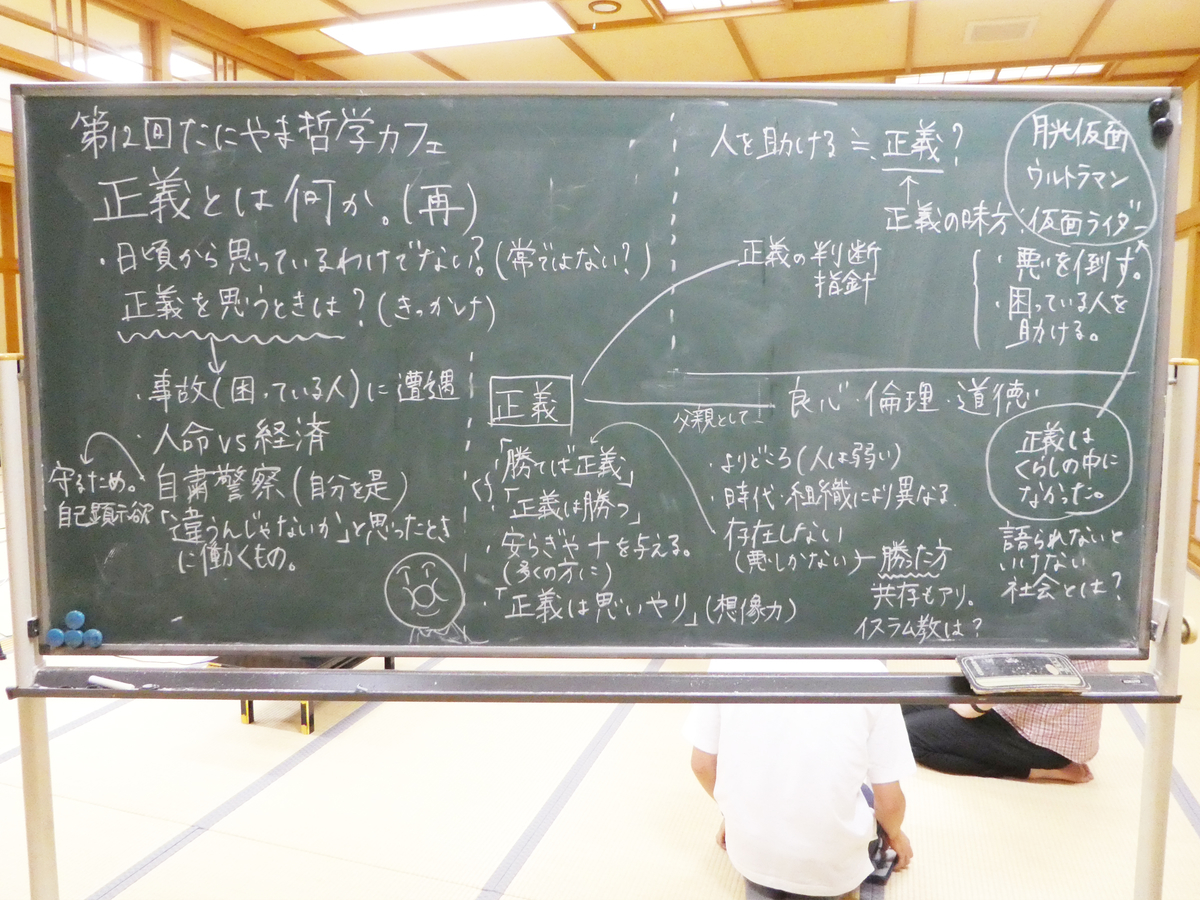 第12回たにやま哲学カフェ
正義とは何か。(再)
・日頃から思っているわけでない?。(常ではない?)
正義を思うときは?(きっかけ)
・事故(困っている人)に遭遇
・人命vs経済
守るため。
自己顕示欲
自粛警察(自分を是)
「違うんじゃないか」と思ったとき
に働くもの。
正義
「勝てば正義」
「正義は勝つ」
・安らぎや
を与える。
(多くの方に)
・「正義は思いやり」(想像力)
人を助ける≒正義?
↑
正義の味方:
月光仮面
ウルトラマン
仮面ライダー
・悪を倒す。
・困っている人を
助ける。
正義の判断
指針
父親として
良心・倫理・道徳
・よりどころ(人は弱い)
・時代・組織により異なる
・存在しない
(悪しかない)
勝った方
共存もアリ。
イスラム教は?
正義は
くらしの中に
なかった。
語られないと
いけない
社会とは?